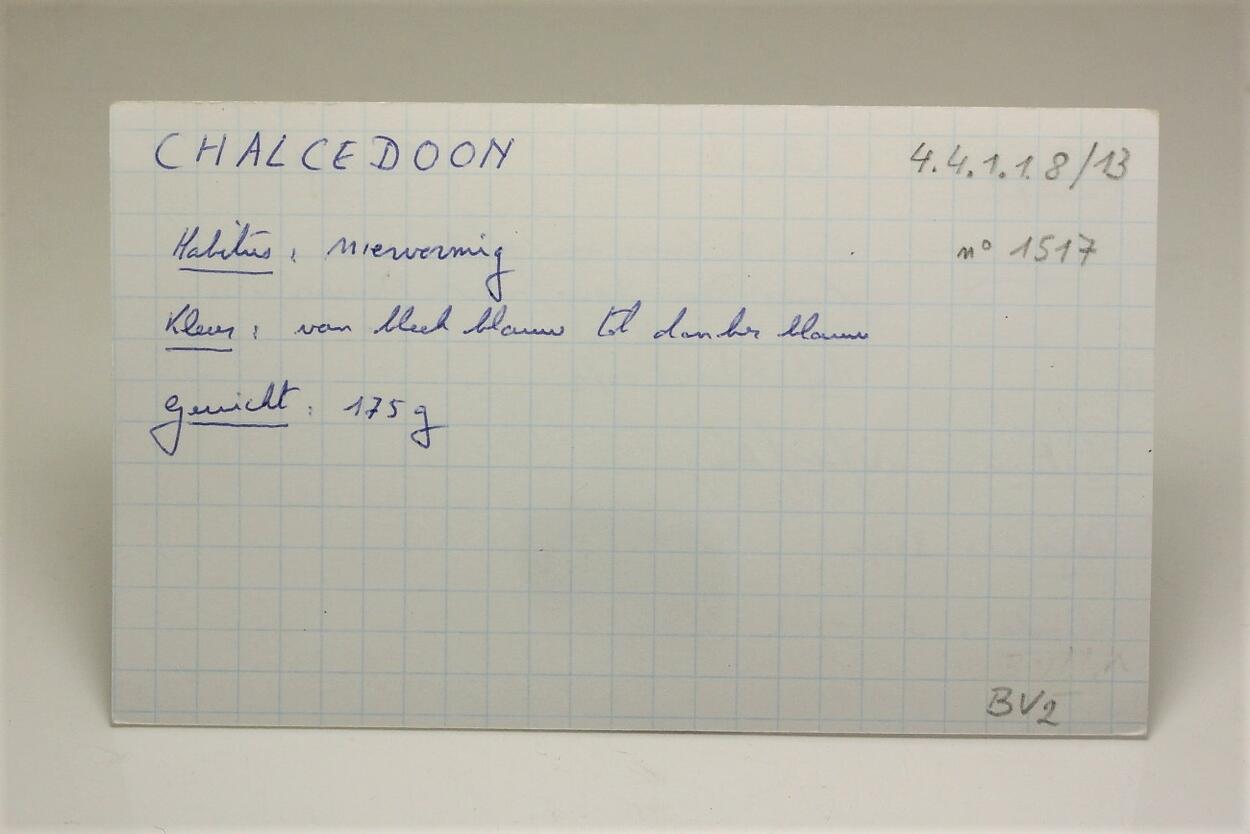 CHALCEDOON
4.4.1.1.8/13
Habitus : niervormig
n° 1517
Kleur : van bleek blauw tot donker blauw
Gewicht : 175 g
BV2